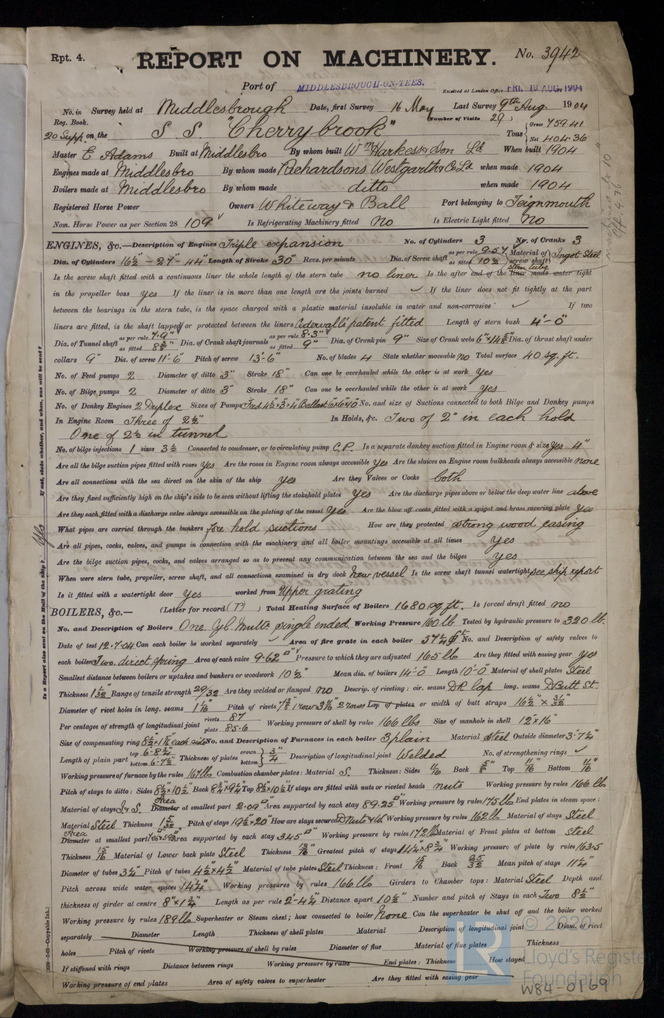 Rpt. 4.
REPORT ON MACHINERY. No. 3942
Port of MIDDLESBROUGH-ON-TEES.
Received at London Office FRI. 19 AUG. 1904
No. in Survey held at Middlesbrough Date, first Survey 16 May Last Survey 9th Aug. 1904
Reg. Book. (Number of Visits 29)
20 Supp. on the S S. "Cherrybrook" Tons Gross 759.41 Net 404.36
Master E Adams Built at Middlesbro By whom built Wm Harkess & Son Ld When built 1904
Engines made at Middlesbro By whom made Richardsons Westgarth & Co Ld when made 1904
Boilers made at Middlesbro By whom made ditto when made 1904
Registered Horse Power Owners Whiteway & Ball Port belonging to Teignmouth
Nom. Horse Power as per Section 28 109 Is Refrigerating Machinery fitted No Is Electric Light fitted No
ENGINES, &c.—Description of Engines Triple expansion No. of Cylinders 3 No. of Cranks 3
Dia. of Cylinders 16½ - 27 - 44" Length of Stroke 30" Revs. per minute Dia. of Screw shaft as per rule 9.54" as fitted 10½" Material of screw shaft Ingot Steel
Is the screw shaft fitted with a continuous liner the whole length of the stern tube no liner Is the after end of the liner made water tight
in the propeller boss yes If the liner is in more than one length are the joints burned ✓ If the liner does not fit tightly at the part
between the bearings in the stern tube, is the space charged with a plastic material insoluble in water and non-corrosive ✓ If two
liners are fitted, is the shaft lapped or protected between the liners Cedervall's patent fitted Length of stern bush 4'-0"
Dia. of Tunnel shaft as per rule 7.9" as fitted 8⅝" Dia. of Crank shaft journals as per rule 8.3" as fitted 9" Dia. of Crank pin 9" Size of Crank webs Dia. of thrust shaft under
collars 9" Dia. of screw 11'-6" Pitch of screw 13'-6" No. of blades 4 State whether moveable no Total surface 40 sq. ft.
No. of Feed pumps 2 Diameter of ditto 3" Stroke 18" Can one be overhauled while the other is at work yes
No. of Bilge pumps 2 Diameter of ditto 3" Stroke 18" Can one be overhauled while the other is at work yes
No. of Donkey Engines 2 Duplex Sizes of Pumps No. and size of Suctions connected to both Bilge and Donkey pumps
In Engine Room Three of 2½" In Holds, &c. Two of 2" in each hold
One of 2½ in tunnel
No. of bilge injections 1 sizes 3½ Connected to condenser, or to circulating pump C.P. Is a separate donkey suction fitted in Engine room & size yes 4"
Are all the bilge suction pipes fitted with roses yes Are the roses in Engine room always accessible yes Are the sluices on Engine room bulkheads always accessible none
Are all connections with the sea direct on the skin of the ship yes Are they Valves or Cocks both
Are they fixed sufficiently high on the ship's side to be seen without lifting the stokehold plates yes Are the discharge pipes above or below the deep water line above
Are they each fitted with a discharge valve always accessible on the plating of the vessel yes Are the blow off cocks fitted with a spigot and brass covering plate yes
What pipes are carried through the bunkers fore hold suctions How are they protected strong wood casing
Are all pipes, cocks, valves, and pumps in connection with the machinery and all boiler mountings accessible at all times yes
Are the bilge suction pipes, cocks, and valves arranged so as to prevent any communication between the sea and the bilges yes
When were stern tube, propeller, screw shaft, and all connections examined in dry dock new vessel Is the screw shaft tunnel watertight see ship report
Is it fitted with a watertight door yes worked from Upper grating
BOILERS, &c.— (Letter for record (T)) Total Heating Surface of Boilers 1680 sq. ft. Is forced draft fitted no
No. and Description of Boilers One Cyl. Mult. single ended Working Pressure 160 lb Tested by hydraulic pressure to 320 lb.
Date of test 12.7.04 Can each boiler be worked separately ✓ Area of fire grate in each boiler No. and Description of safety valves to
each boiler Two direct spring Area of each valve 9.62" Pressure to which they are adjusted 165 lb Are they fitted with easing gear yes
Smallest distance between boilers or uptakes and bunkers or woodwork 10½" Mean dia. of boilers 14'-0" Length 10'-0" Material of shell plates Steel
Thickness 1 5/32" Range of tensile strength 29/32 Are they welded or flanged no Descrip. of riveting: cir. seams DR lap long. seams D Butt St.
Diameter of rivet holes in long. seams Pitch of rivets Lap of plates or width of butt straps
Per centages of strength of longitudinal joint rivets 87 plate 85.6 Working pressure of shell by rules 166 lbs Size of manhole in shell 12" x 16"
Size of compensating ring No. and Description of Furnaces in each boiler 3 plain Material Steel Outside diameter 3'-7½"
Length of plain part top 6-8½" bottom 6-7½" Thickness of plates crown bottom ¾" Description of longitudinal joint Welded No. of strengthening rings ✓
Working pressure of furnace by the rules 167 lbs Combustion chamber plates: Material S. Thickness: Sides Back Top Bottom
Pitch of stays to ditto: Sides Back Top If stays are fitted with nuts or riveted heads nuts Working pressure by rules 166 lb
Material of stays Area Diameter at smallest part 2.09" Area supported by each stay 89.25" Working pressure by rules 175 lb End plates in steam space:
Material Steel Thickness Pitch of stays How are stays secured D Nuts Working pressure by rules 162 lb Material of stays Steel
Area Diameter at smallest part Area supported by each stay 345" Working pressure by rules Material of Front plates at bottom steel
Thickness Material of Lower back plate Steel Thickness Greatest pitch of stays Working pressure of plate by rules 163.5
Diameter of tubes 3¼" Pitch of tubes 4½" x 4½" Material of tube plates Steel Thickness: Front Back Mean pitch of stays 11¼"
Pitch across wide water spaces 14½" Working pressures by rules 166 lb Girders to Chamber tops: Material Steel Depth and
thickness of girder at centre 8" x 1½" Length as per rule 2'-4½" Distance apart 10½" Number and pitch of Stays in each Two 8½"
Working pressure by rules 189 lb Superheater or Steam chest; how connected to boiler None Can the superheater be shut off and the boiler worked
separately Diameter Length Thickness of shell plates Material Description of longitudinal joint Diam. of rivet
holes Pitch of rivets Working pressure of shell by rules Diameter of flue Material of flue plates Thickness
If stiffened with rings Distance between rings Working pressure by rules End plates: Thickness How stayed
Working pressure of end plates Area of safety valves to superheater Are they fitted with easing gear
Is a Report also sent on the Hull of the ship? If not, state whether, and when, one will be sent?
Yes
© 2020
Lloyd's Register
Foundation
W84-0169